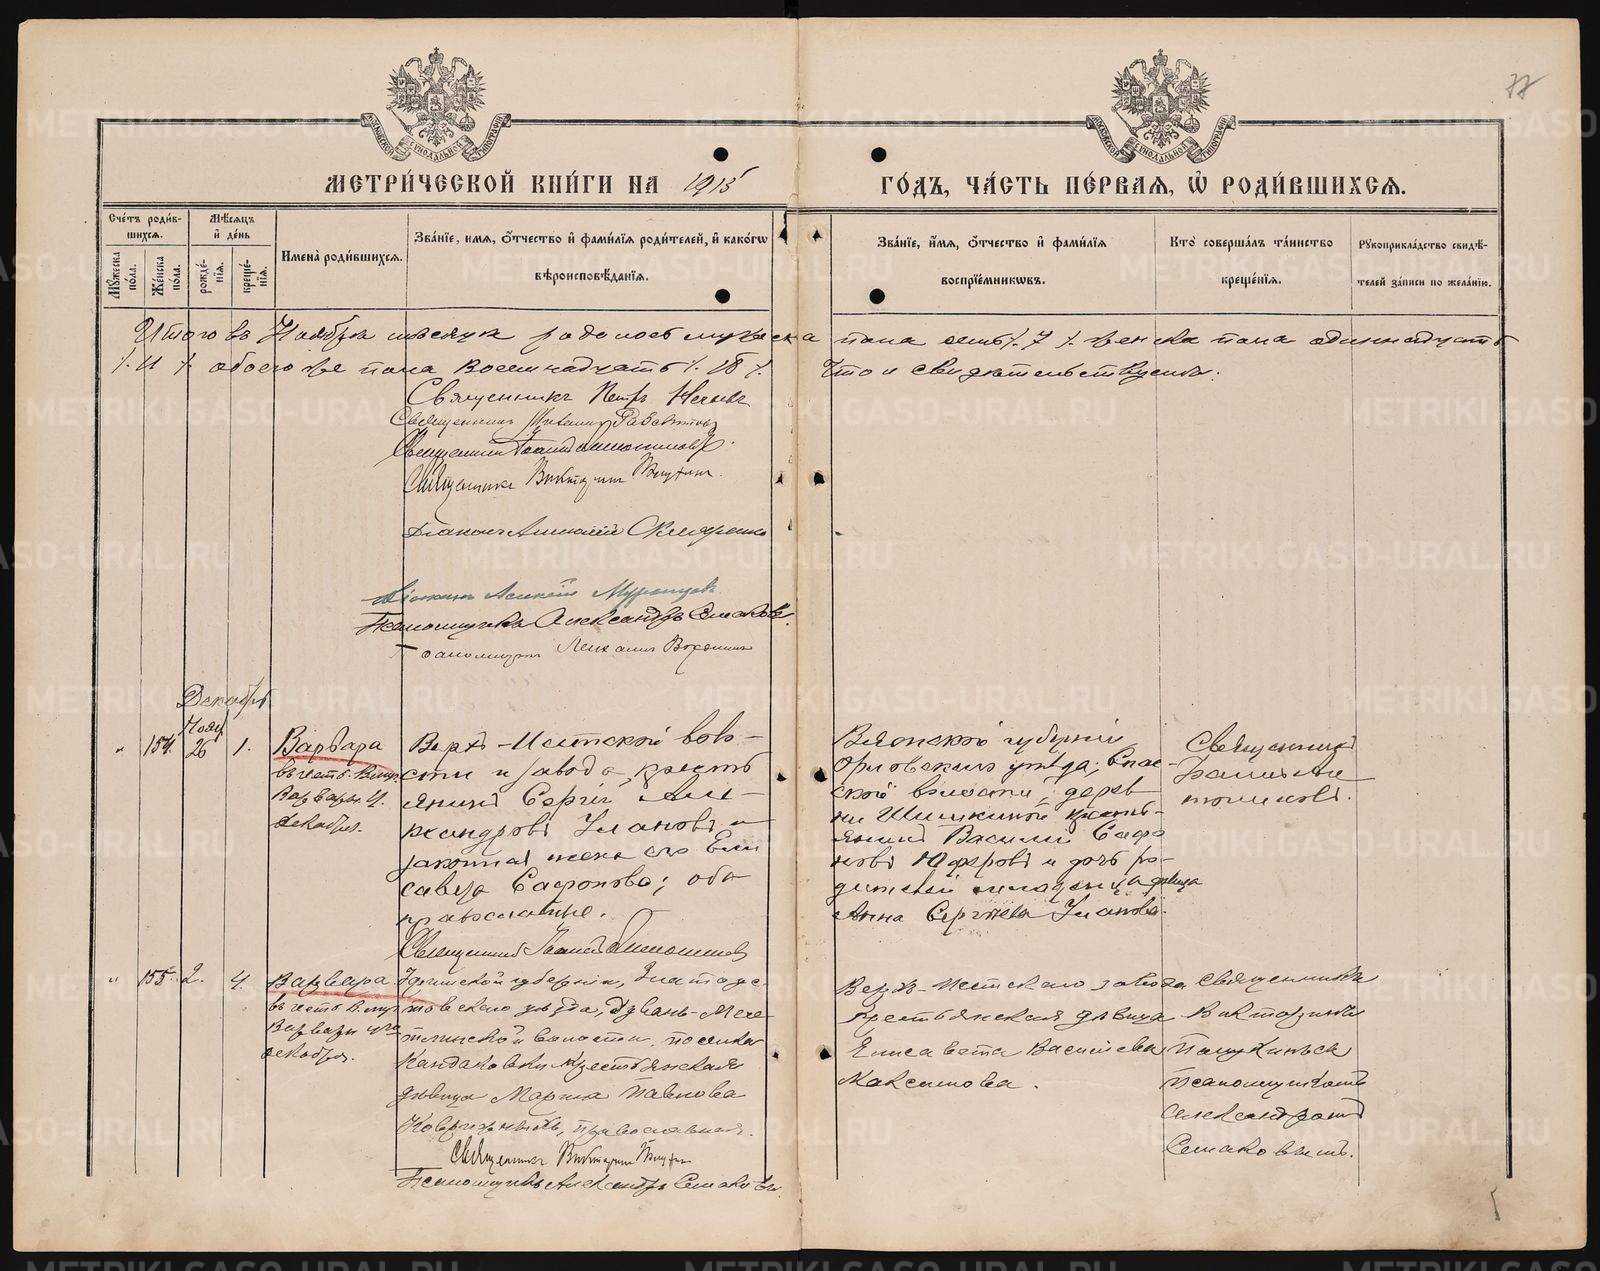 77
МЕТРИ́ЧЕСКОЙ КНИ́ГИ НА 1915
ГО́ДЪ, ЧА́СТЬ ПЕ́РВАЯ, Ѡ҆ РОДИ́ВШИХСЯ.
Сче́тъ роди́вшихся.
Мѣ́сяцъ и҆ де́нь
Имена̀ роди́вшихся.
Зва́нїе, и҆мя, ѻ҆́тчество и҆ фами́лїя роди́телей, и҆ како́гѡ вѣроисповѣ́данїя.
Зва́нїе, и҆́мя, ѻ҆́тчество и҆ фами́лїя воспрїе́мникѡвъ.
Кто̀ соверша́лъ та́инство креще́нїя.
Рꙋкоприкла́дство свидѣ́телей за́писи по жела́нїю.
Мꙋ́жеска по́ла.
Же́нска по́ла.
рожде́нїя.
креще́нїя.
Итого въ Ноябрѣ мѣсяцѣ родилось мужеска пола семь /. 7 /. женска пола одиннадцать
/. 11 /. обоего же пола восемнадцать /. 18 /. Что и свидѣтельствуемъ:
Священникъ Петръ
Священникъ
Священникъ Іоаннъ
Священникъ Викторинъ
Діаконъ Алексій
Діаконъ Алексій
Псаломщикъ Александръ Семаковъ.
Псаломщикъ
Декабрь
" 154. Нояб. 26 1.
Варвара
въ честь Вмуч.
Варвары 4.
декабря.
Верхъ-Исетской воло-
сти и завода, кресть-
янинъ Сергій Але-
ксандровъ Улановъ и
законная жена его Ели
савета Сафонова; оба
православные.
Священникъ Іоаннъ
Вятской губерніи
Орловскаго уѣзда, Спас-
ской волости, дерев-
ни Шишкиной кресть-
янинъ Василій Сафо
новъ Юферовъ и дочь ро-
дителей младенца дѣвица
Анна Сергѣева Уланова.
Священникъ
" 155. 2. 4.
Варвара
въ честь в.муч.
Варвары 4го
декабря.
Уфимской губерніи, Златоус-
товскаго уѣзда, Дуванъ-Мече-
тлинской волости, поселка
крестьянская
дѣвица Марина Павлова
православная.
Священникъ Викторинъ
Псаломщикъ Александръ Семаковъ.
Верхъ-Исетскаго завода
крестьянская дѣвица
Елисавета Васильева
Максимова.
Священникъ
Викторинъ
съ
псаломщикомъ
Александромъ
Семаковымъ.
METRIKI.GASO-URAL.RU